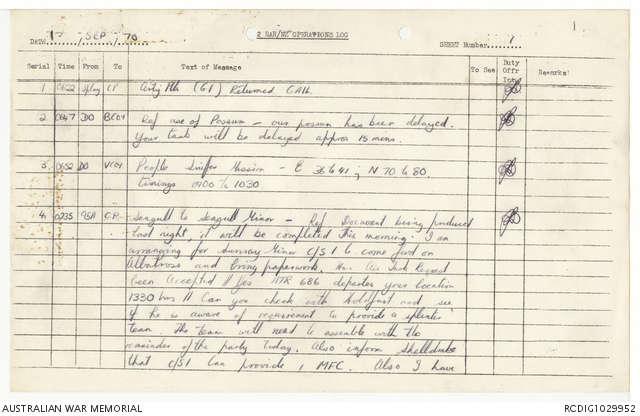 1
2 RAR/NZ OPERATIONS LOG
DATE 1 / SEP / 70 SHEET Number 1
Serial Time From To Text of Message To See Duty Offr Remarks
1 0622 CP Arty Ptl (61) Returned CALL.
2 0647 DO BCOY Ref use of Possum - our possum has been delayed.
Your task will be delayed approx 15 mins.
3 0652 DO VCOY People Sniffer Mission - E 36 to 41 ; N 70 to 80
timings 0900 to 1030
4 0735 CP Seagull to Seagull Minor - Ref Document being produced
last night, it will be completed this morning. I am
arranging for Sunray Minor C/S 1 to come fwd on
Albatross and bring paperwork. Has Air Task Request
been accepted // Yes ATR 686 departs your location
1330 hrs // Can you check with Holdfast and see
if he is aware of requirement to provide a splinter
team. The team will need to assemble with the
remainder of the party today. Also inform Shelldrake
that C/S 1 can provide 1 MFC. Also I have
AUSTRALIAN WAR MEMORIAL RCDIG1029952